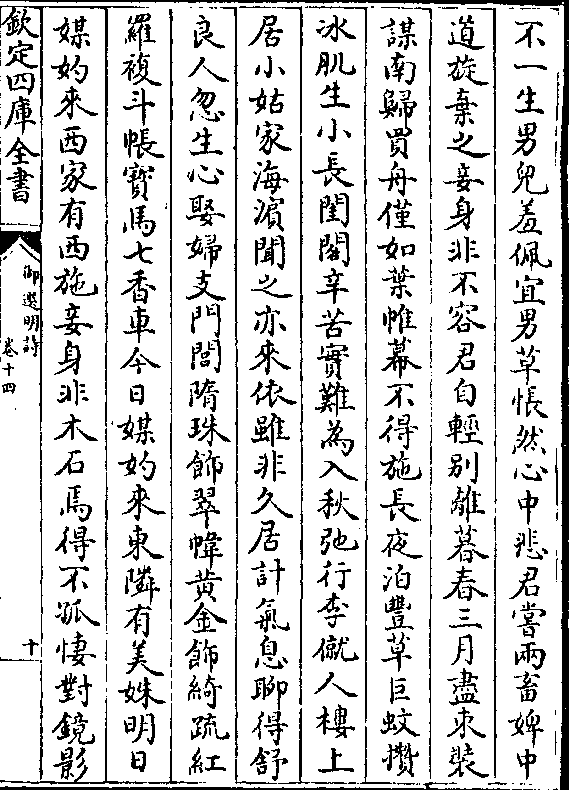 不一生男兒羞佩宜男草悵然心中悲君嘗兩畜婢中
道旋棄之妾身非不容君自輕别離暮春三月盡朿裝
謀南歸買舟僅如葉帷幕不得施長夜泊豐草巨蚊攢
冰肌生小長閨閤辛苦實難為入秋弛行李僦人樓上
居小姑家海濵聞之亦來依雖非久居計氣息聊得舒
良人忽生心娶婦支門閭隋珠飾翠幃黄金飾綺疏紅
羅複斗帳寳馬七香車今日媒妁來東隣有美姝明日
媒妁來西家有西施妾身非木石焉得不孤悽對鏡影
欽定四庫全書
御選明詩
卷十四
十